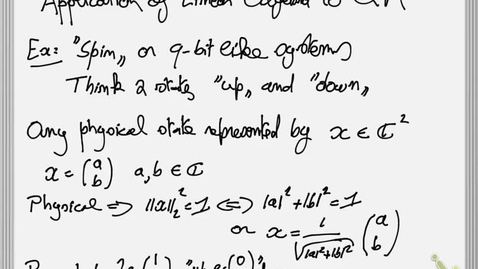 Application of Linear Algebra to QM
Ex: "Spin" or q-bit like systems
Think 2 states "up" and "down"
Any physical state represented by x ∈ ℂ²
x = (a b) a, b ∈ ℂ
Physical ⇒ ||x||₂² = 1 ⇔ |a|² + |b|² = 1
or x = 1/√(|a|²+|b|²) (a b)